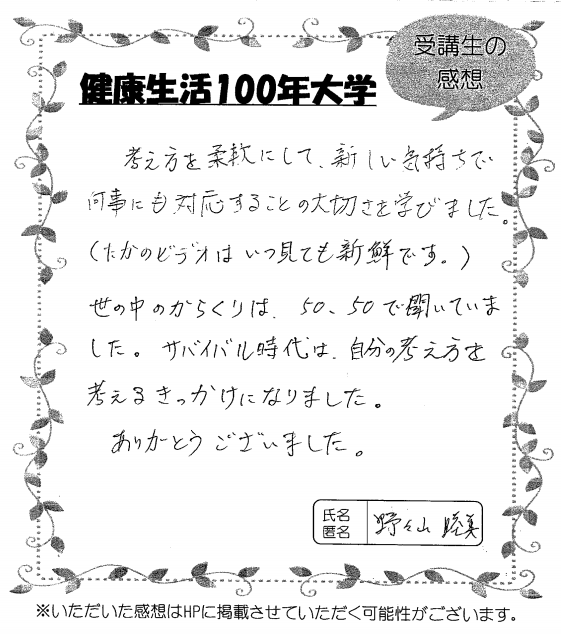 受講生の
感想
健康生活100年大学
考え方を柔軟にして、新しい気持ちで
何事にも対応することの大切さを学びました。
(たかのビデオはいつ見ても新鮮です。)
世の中のからくりは、50、50で聞いていま
した。サバイバル時代は、自分の考え方を
考えるきっかけになりました。
ありがとうございました。
氏名
匿名
野々山 睦美
※いただいた感想はHPに掲載させていただく可能性がございます。